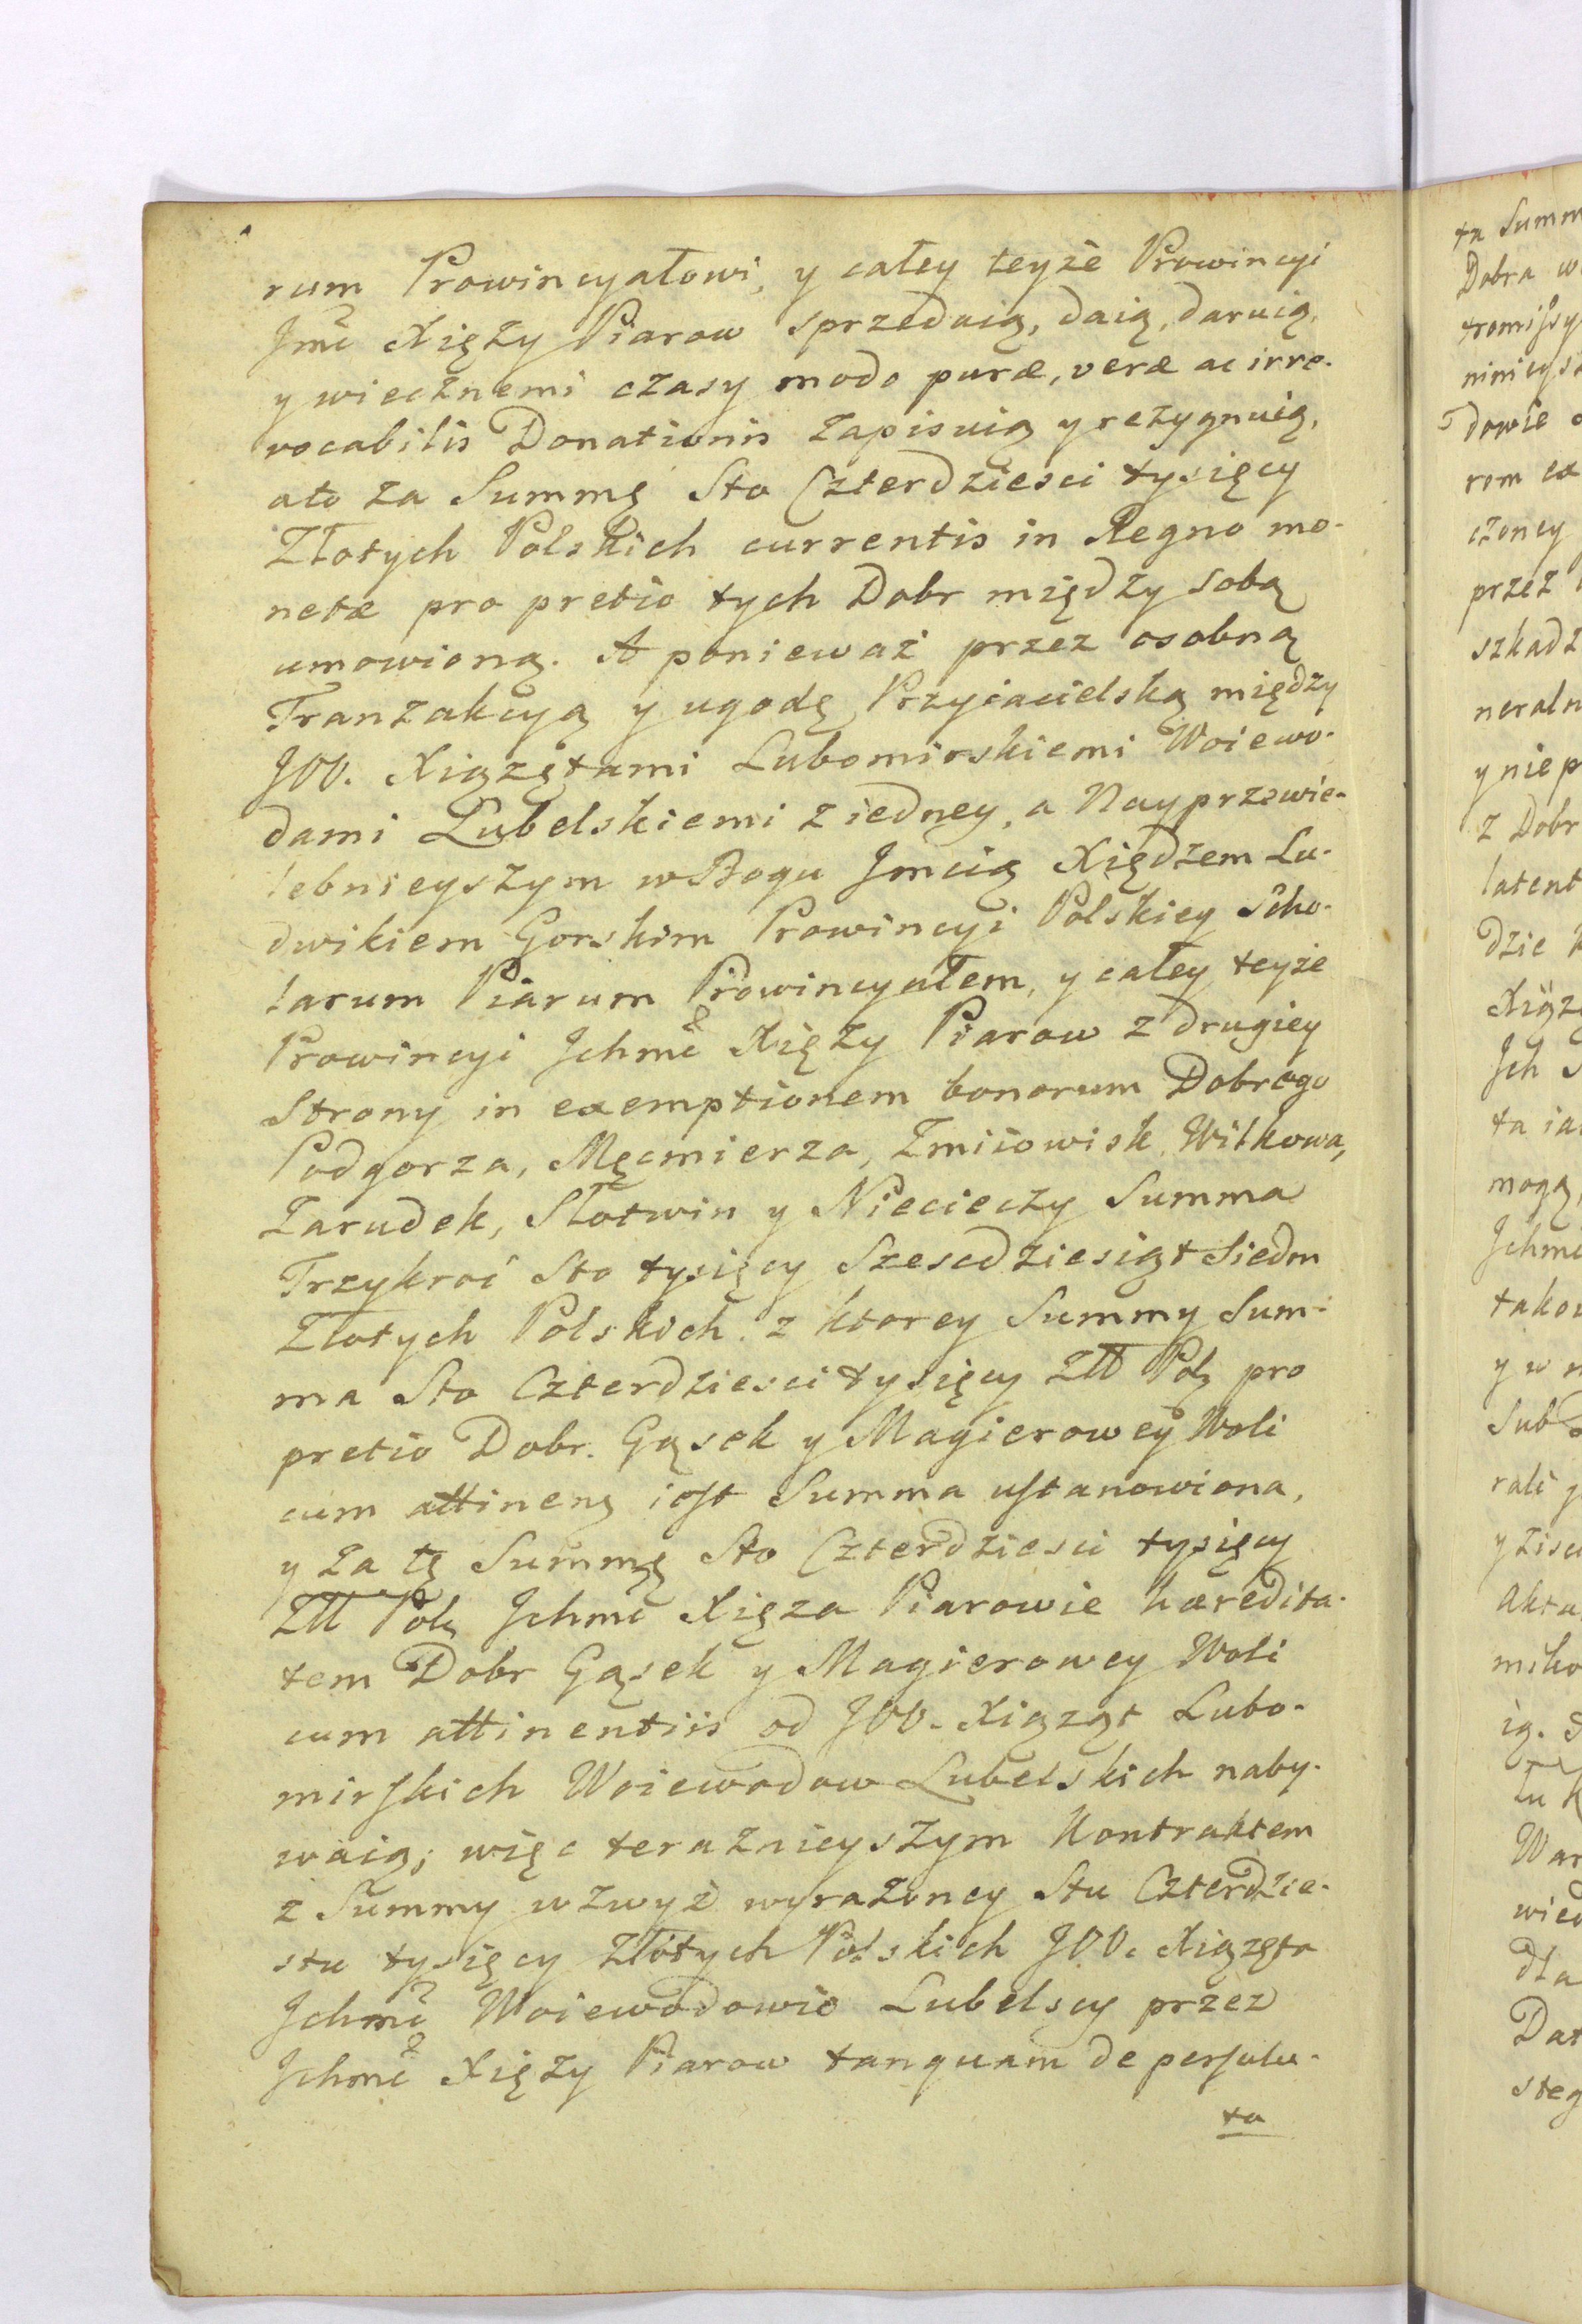 rum Prowincyałowi, y całey teyże Prowincyi
Jmć Xięży Piarow sprzedaią, daią, daruią,
y wiecznemi czasy modo puræ, veræ ac irre-
vocabilis Donationis zapisuią y rezygnuią,
ato za Summę Sto Czterdziesci tysięcy
Złotych Polskich currentis in Regno mo-
netæ pro pretio tych Dobr między sobą
umowioną. A ponieważ przez osobną
Tranzakcyą y ugodę Przyiacielską między
JOO. Xiążętami Lubomirskiemi Woiewo-
dami Lubelskiemi z iedney, a Nayprzewie-
lebnieyszym w Bogu Jmcią Xiędzem Lu-
dwikiem Gorskim Prowincyi Polskiey Scho-
larum Piarum Prowincyałem, y całey teyże
Prowincyi Jchmć Xięży Piarow z drugiey
Strony in exemptionem bonorum Dobrego
Podgorza, Męcmierza, Zmiiowisk, Witkowa,
Zarudek, Słotwin y Niecieczy Summa
Trzykroć Sto tysięcy Szescdziesiąt Siedm
Złotych Polskich. z ktorey Summy Sum-
ma Sto Czterdziesci tysięcy Złł Pol. pro
pretio Dobr. Gąsek y Magierowey Woli
cum attinen. iest Summa ustanowiona,
y za tę Summę Sto Czterdziesci tysięcy
Złł Pol. Jchmć Xięza Piarowie hæredita-
tem Dobr Gąsek y Magierowey Woli
cum attinentiis od JOO. Xiążąt Lubo-
mirskich Woiewodow Lubelskich naby-
waią; więc teraznieyszym Kontraktem
z Summy wzwyż wyrażoney Stu Czterdzie-
stu tysięcy Złotych Polskich JOO. Xiążęta
Jchmć Woiewodowie Lubelscy przez
Jchmć Xięży Piarow tanquam de persolu-
ta
ta Summ
Dobra w
nineys
dowie
rem ex
czoney
przez
szkadz
neraln
y nie p
z Dobr
latent
dzie
Xiąz
Jch
ta ia
mogą,
Jchmć
takow
y w n
Sub
rali
y zisc
Akta
miko
ią.
War
wied
dla
Dat
steg